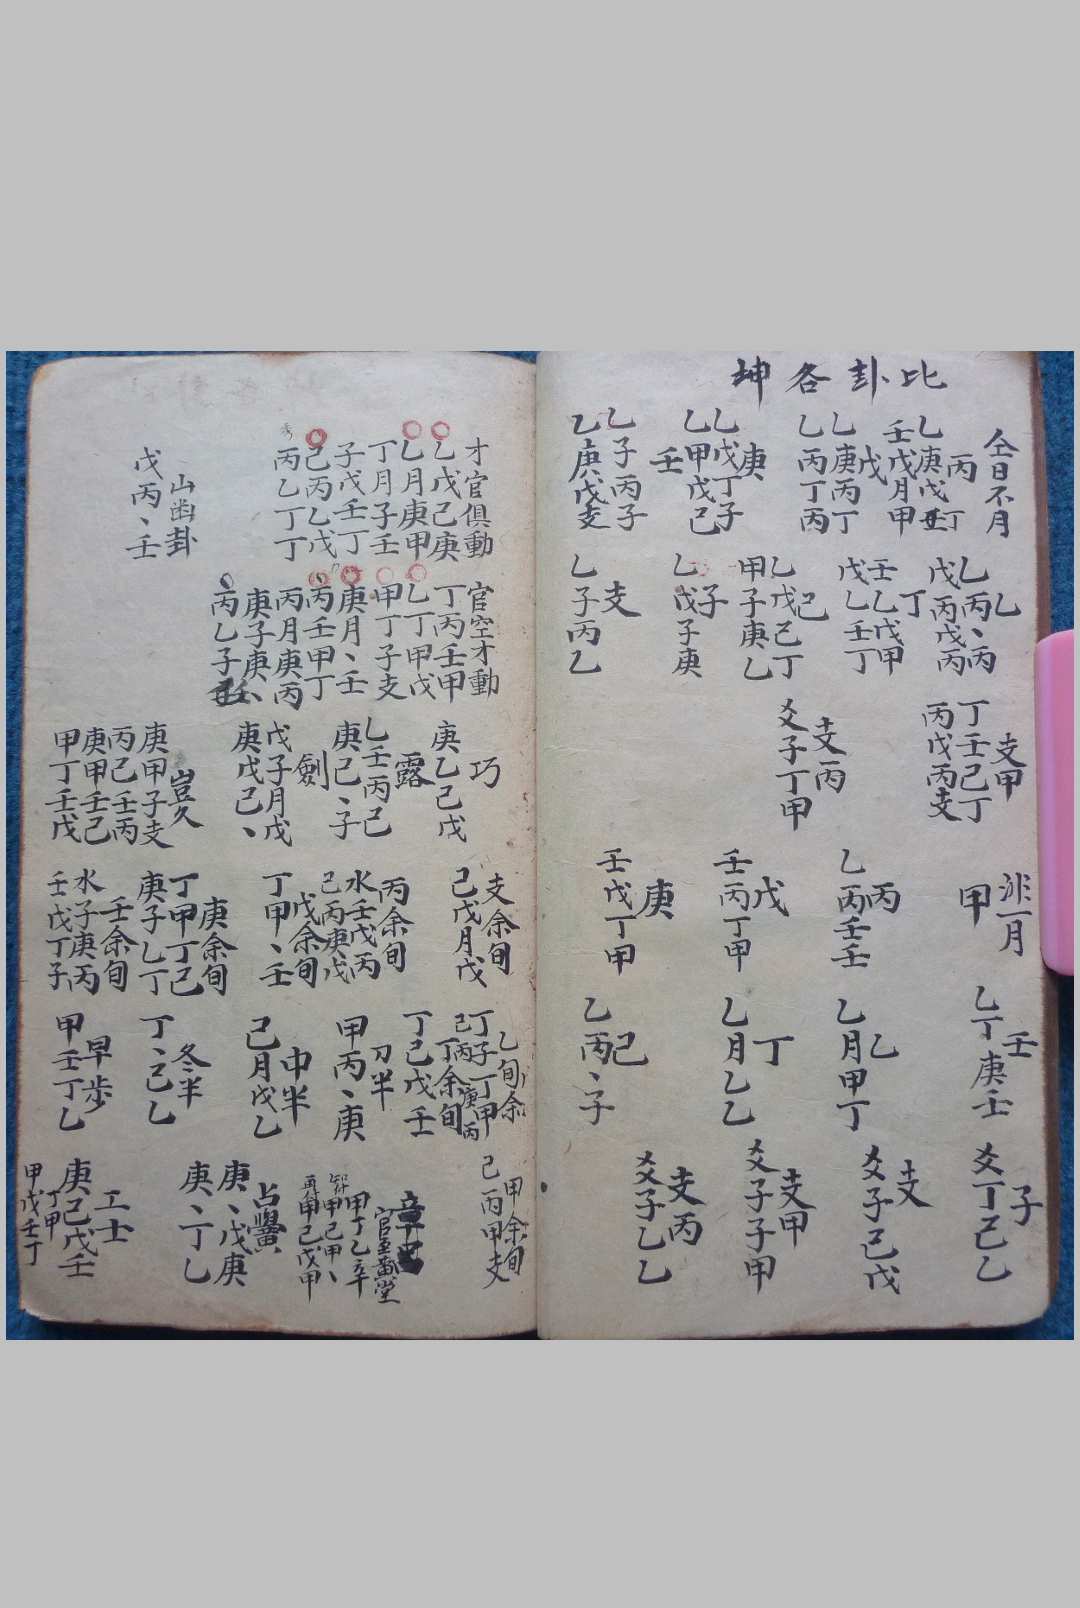 比卦各坤
仝日不月
丙
乙庚戊丁
壬戊月甲
戊
乙庚丙丁
乙丙丁丙
庚
乙戊丁子
乙甲戊己
壬
乙子丙子
乙庚戊支
乙
乙丙丶丙
戊丙戊丙
丁
壬乙戊甲
戊乙壬丁
己
乙戊己丁
甲子庚乙
子
乙戊子庚
支
乙子丙乙
支甲
丁壬己丁
丙戊丙支
支丙
爻子丁甲
甲
丙
乙丙壬壬
戊
壬丙丁甲
庚
壬戊丁甲
壬
乙丁庚壬
乙
乙月甲丁
丁
乙月乙乙
己
乙丙丶子
子
爻丁己乙
支
爻子己戊
支甲
爻子子甲
支丙
爻子乙乙
才官俱動
乙戊己庚
乙月庚甲
丁月子壬
子戊壬丁
己丙乙戊
丙乙丁丁
山凿卦
戊丙丶壬
官空才動
丁丙壬甲
乙丁甲戊
甲丁子支
庚月丶壬
丙壬甲丁
丙月庚丙
庚子庚丶
丙乙子
巧
庚乙己戊
露
乙壬丙己
庚己丶子
劍
戊子月戊
庚戊己丶
庚甲子支
丙己壬丙
庚甲壬己
甲丁壬戊
支余旬
己戊月戊
丙余旬
水壬戊丙
己丙庚戊
戊余旬
丁甲丶壬
庚余旬
丁甲丁己
庚子乙丁
壬余旬
水子庚丙
壬戊丁子
乙旬余
丁子丁甲
己丙庚丙
丁余旬
丁己戊壬
刀半
甲丙丶庚
中半
己月戊乙
冬半
丁丶己乙
早步
甲壬丁乙
甲余旬
己丙甲支
甲丁乙辛
甲己甲丶
甲己戊甲
占
庚丶戊庚
庚丶丁乙
工士
庚己戊壬
丁甲
甲戊壬丁